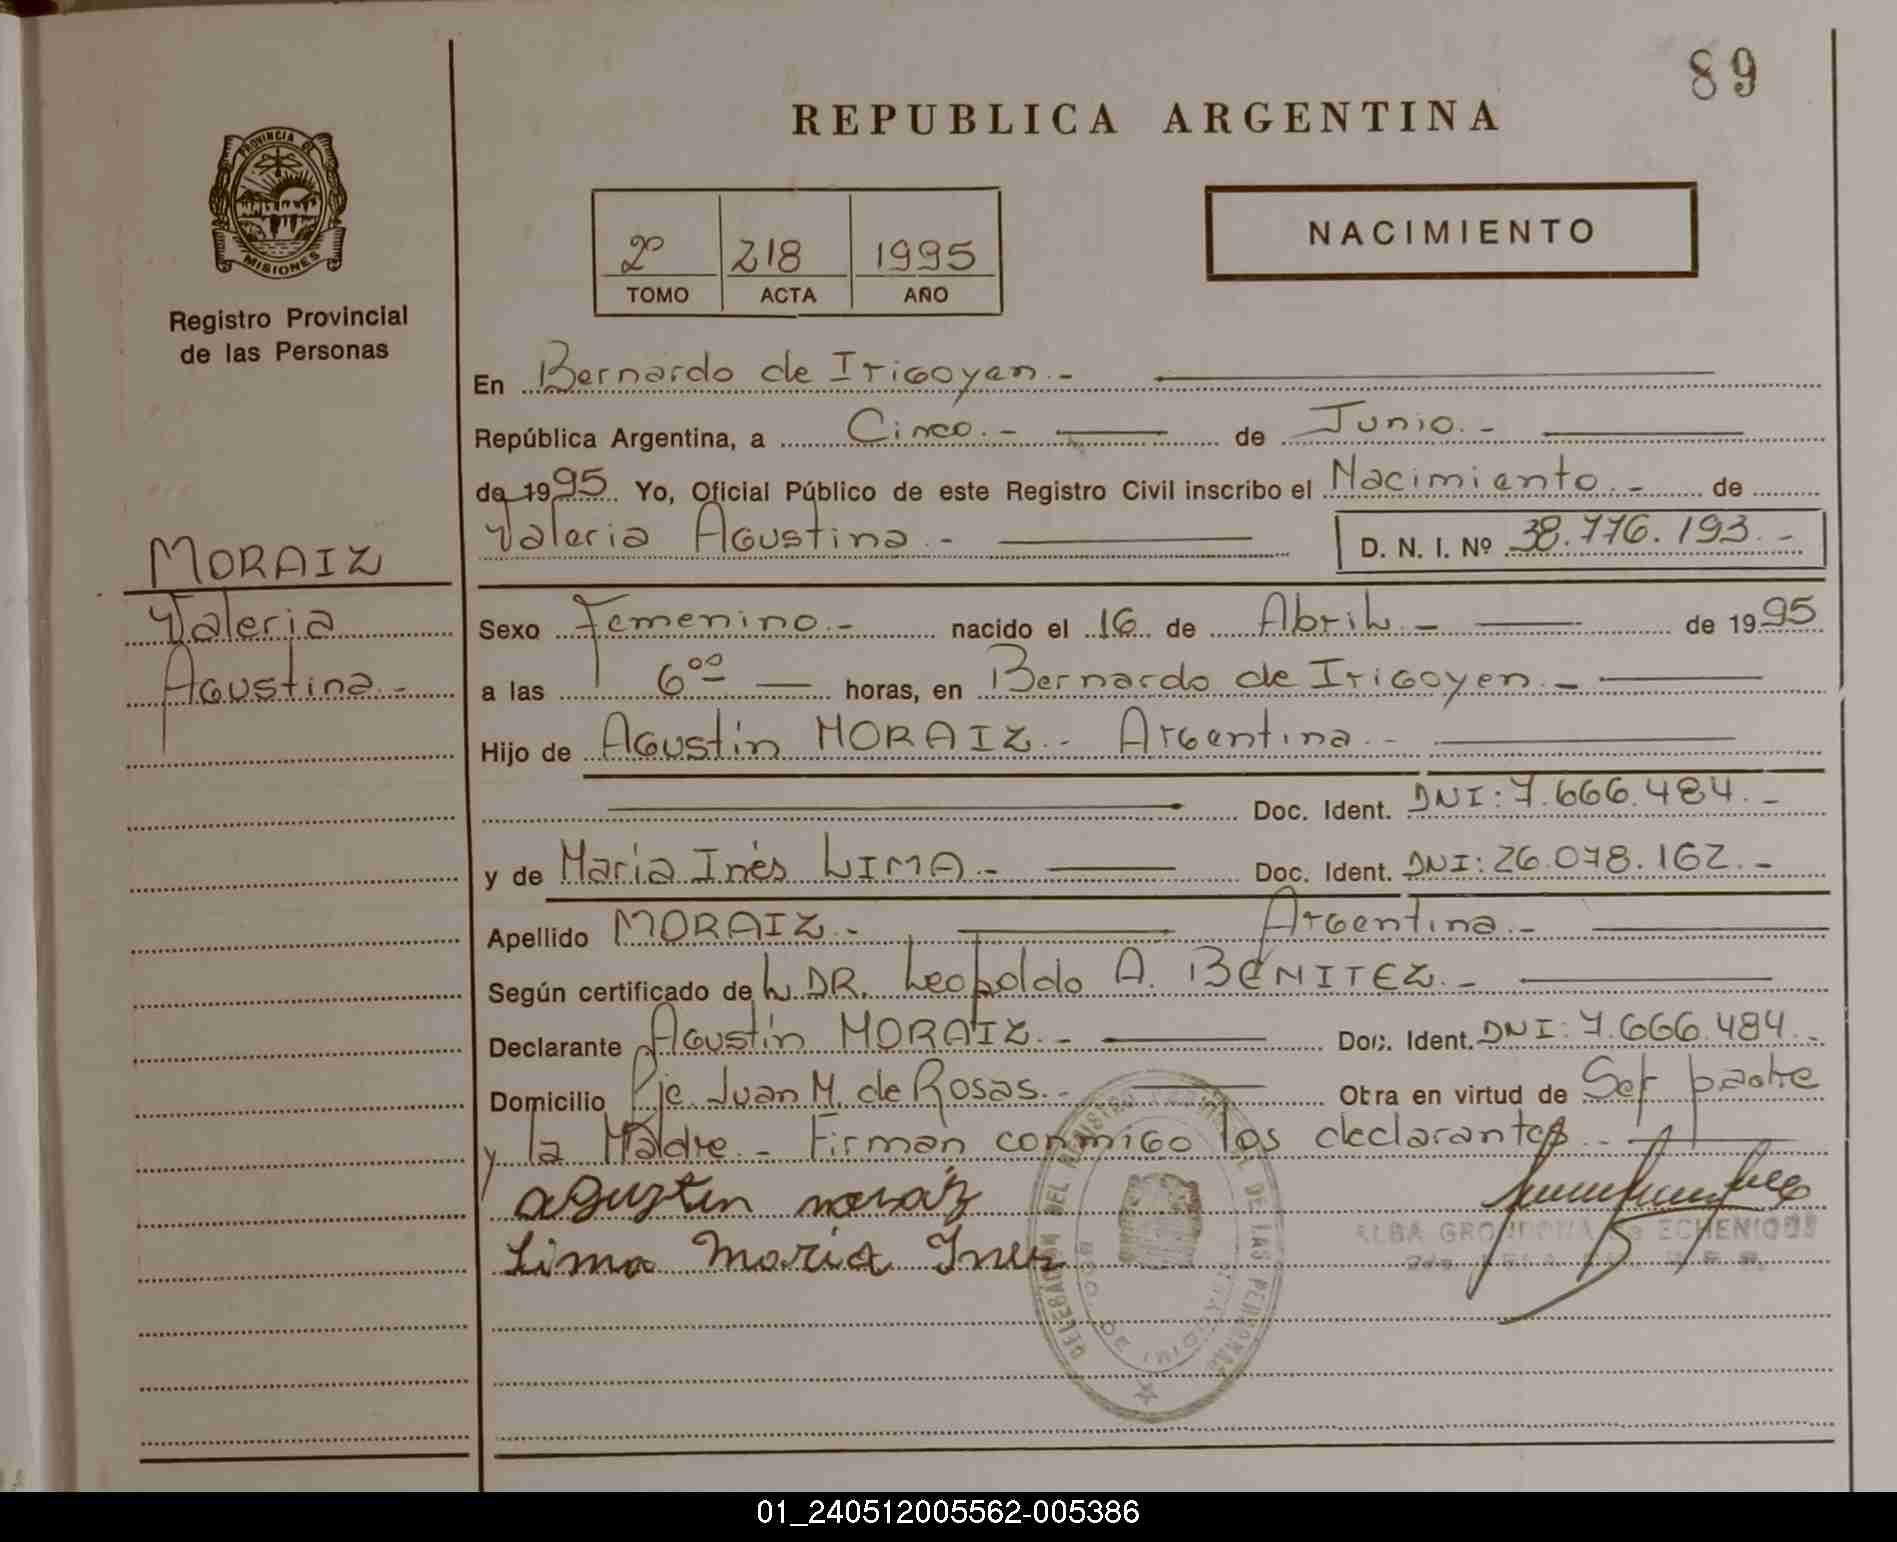 89
REPUBLICA ARGENTINA
PROVINCIA DE
MISIONES
Registro Provincial
de las Personas
2º 218 1995
TOMO ACTA AÑO
NACIMIENTO
En Bernardo de Irigoyen.-
República Argentina, a Cinco.- de Junio.-
de 1995 Yo, Oficial Público de este Registro Civil inscribo el Nacimiento.- de
Valeria Agustina.- D. N. I. Nº 38.776.193.-
MORAIZ
Valeria
Agustina.-
Sexo Femenino.- nacido el 16 de Abril.- de 1995
a las 6 00 horas, en Bernardo de Irigoyen.-
Hijo de Agustín MORAIZ.- Argentina.-
Doc. Ident. DNI: 7.666.484.-
y de María Inés LIMA.- Doc. Ident. DNI: 26.078.162.-
Apellido MORAIZ.- Argentina.-
Según certificado de L DR. Leopoldo A. BENITEZ.-
Declarante Agustín MORAIZ.- Doc. Ident. DNI: 7.666.484.-
Domicilio Pje. Juan M. de Rosas.- Obra en virtud de Ser padre
y la Madre.- Firman conmigo los declarantes.-
Agustin moraiz
Lima Maria Ines
ALBA GRONDONA DE ECHENIQUE
DEL REGISTRO DE LAS PERSONAS
01_240512005562-005386